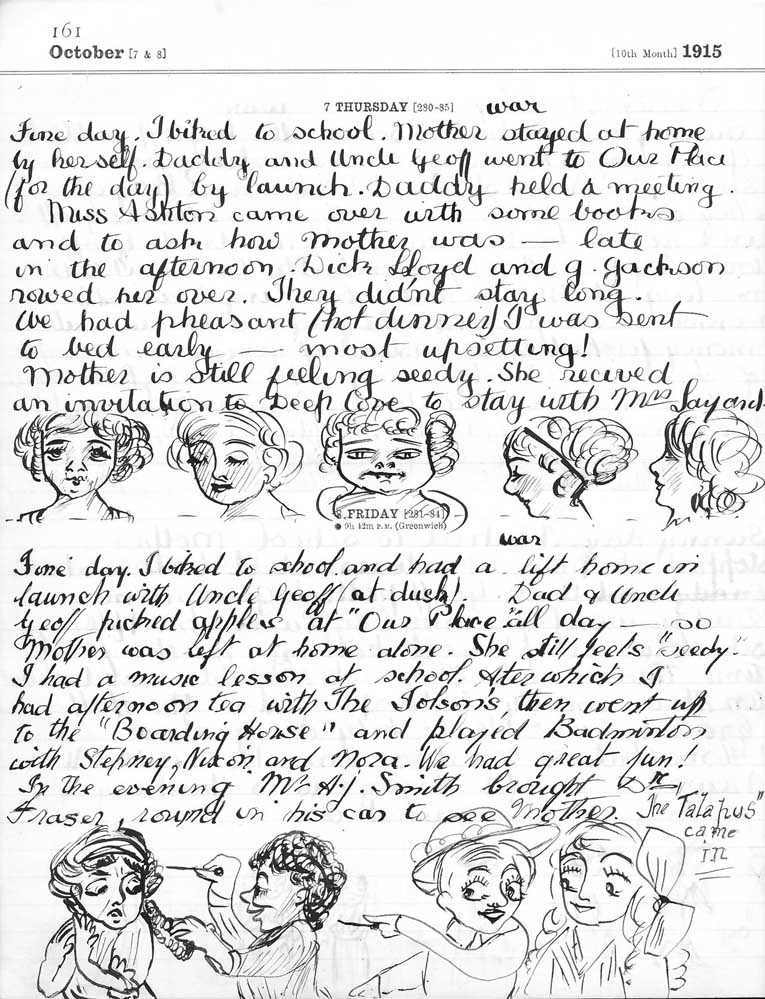 161
October [7 & 8] [10th Month] 1915
7 THURSDAY [280-85] war
Fine day. I biked to school. Mother stayed at home
by herself. Daddy and Uncle Geoff went to Our Place
(for the day) by launch. Daddy held a meeting.
Miss Ashton came over with some books
and to ask how Mother was — late
in the afternoon. Dick Lloyd and G. Jackson
rowed her over. They didn't stay long.
We had pheasant (hot dinner) I was sent
to bed early — most upsetting!
Mother is still feeling seedy. She recived
an invitation to Deep Cove to stay with Mrs Jay and
8 FRIDAY [281-84]
9h 42m P.M. (Greenwich)
war
Fine day. I biked to school and had a lift home in
launch with Uncle Geoff (at dusk). Dad & Uncle
Geoff picked apples at "Our Place" all day — so
Mother was left at home alone. She still feels "seedy".
I had a music lesson at school. Ater which I
had afternoon tea with The Tolson's then went up
to the "Boarding House" and played Badminton
with Stepney, Nixon and Nora. We had great fun!
In the evening Mr A.J. Smith brought Dr
Fraser, round in his car to see Mother. The "Talapus"
came
in